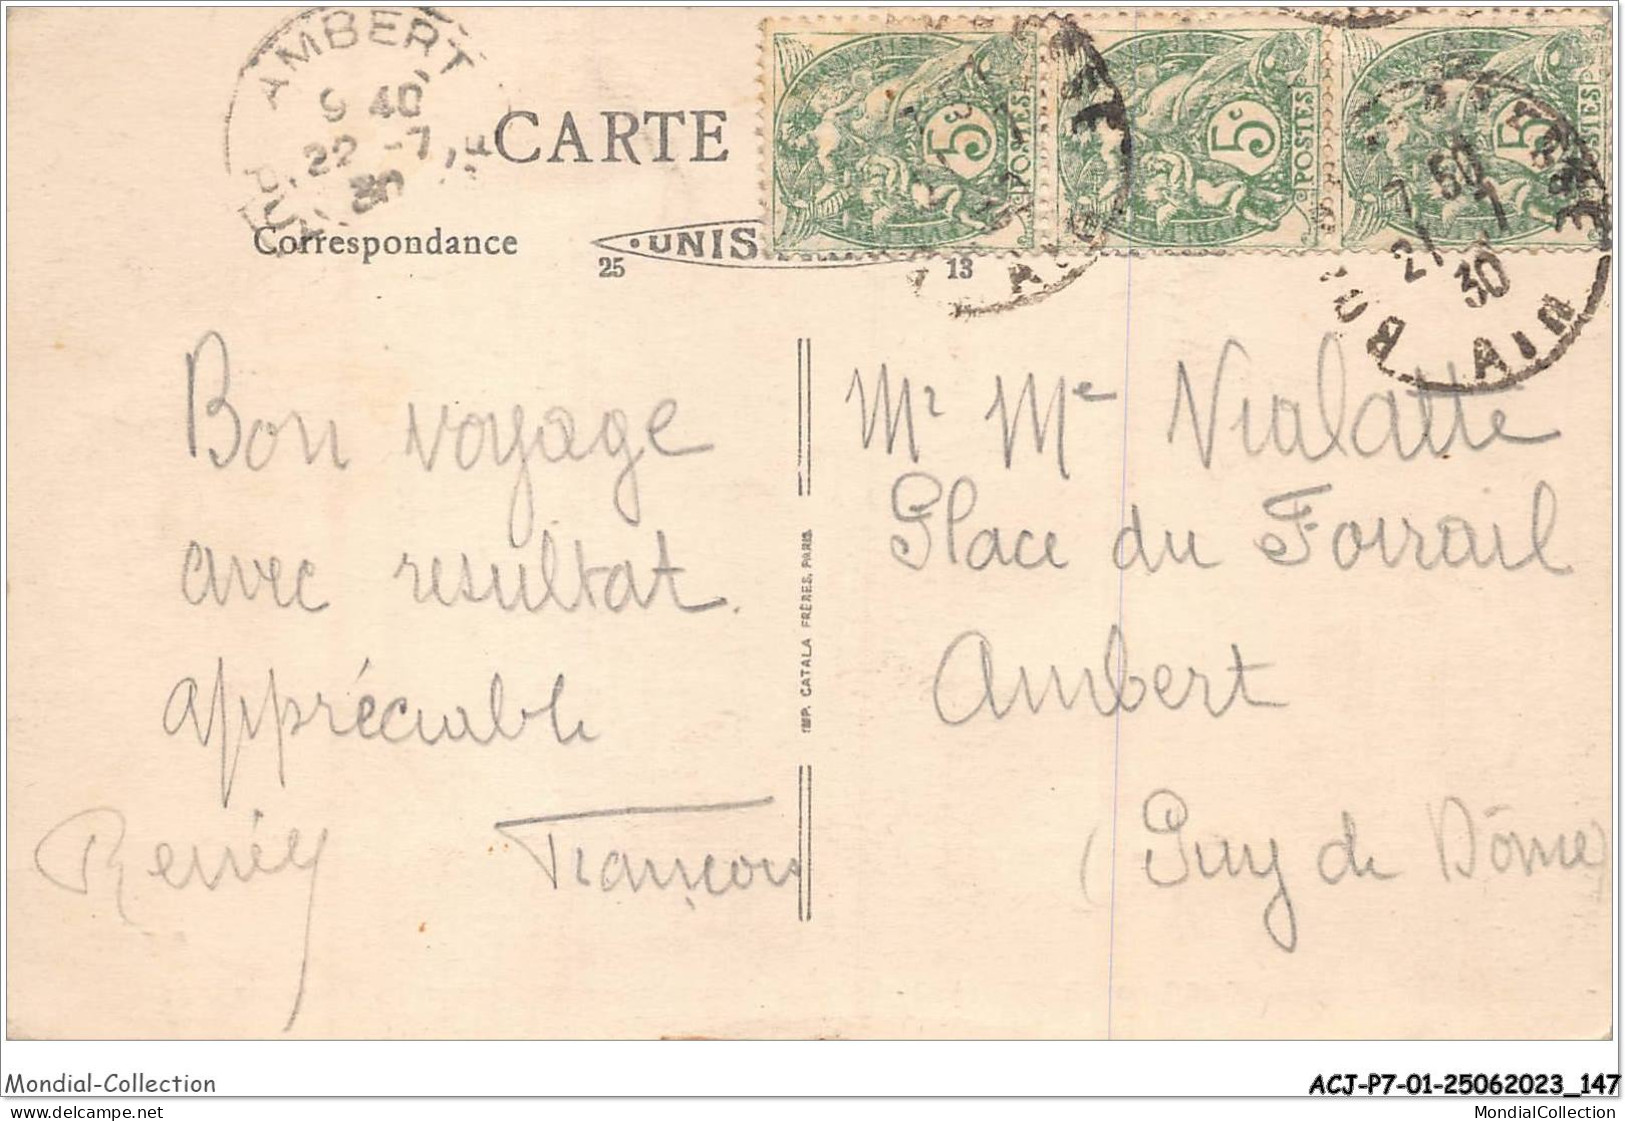 AMBERT
9 40
22 -7
30
CARTE
Correspondance
UNIS
25 13
5c POSTES
5c POSTES
5c POSTES
7 50
21 7
30
AIN
Bon voyage
avec resultat.
appréciable
François
IMP. CATALA FRÈRES, PARIS
Mr Me Vialatte
Place du Foirail
Ambert
(Puy de Dôme)
Mondial-Collection
ACJ-P7-01-25062023_147
www.delcampe.net
MondialCollection